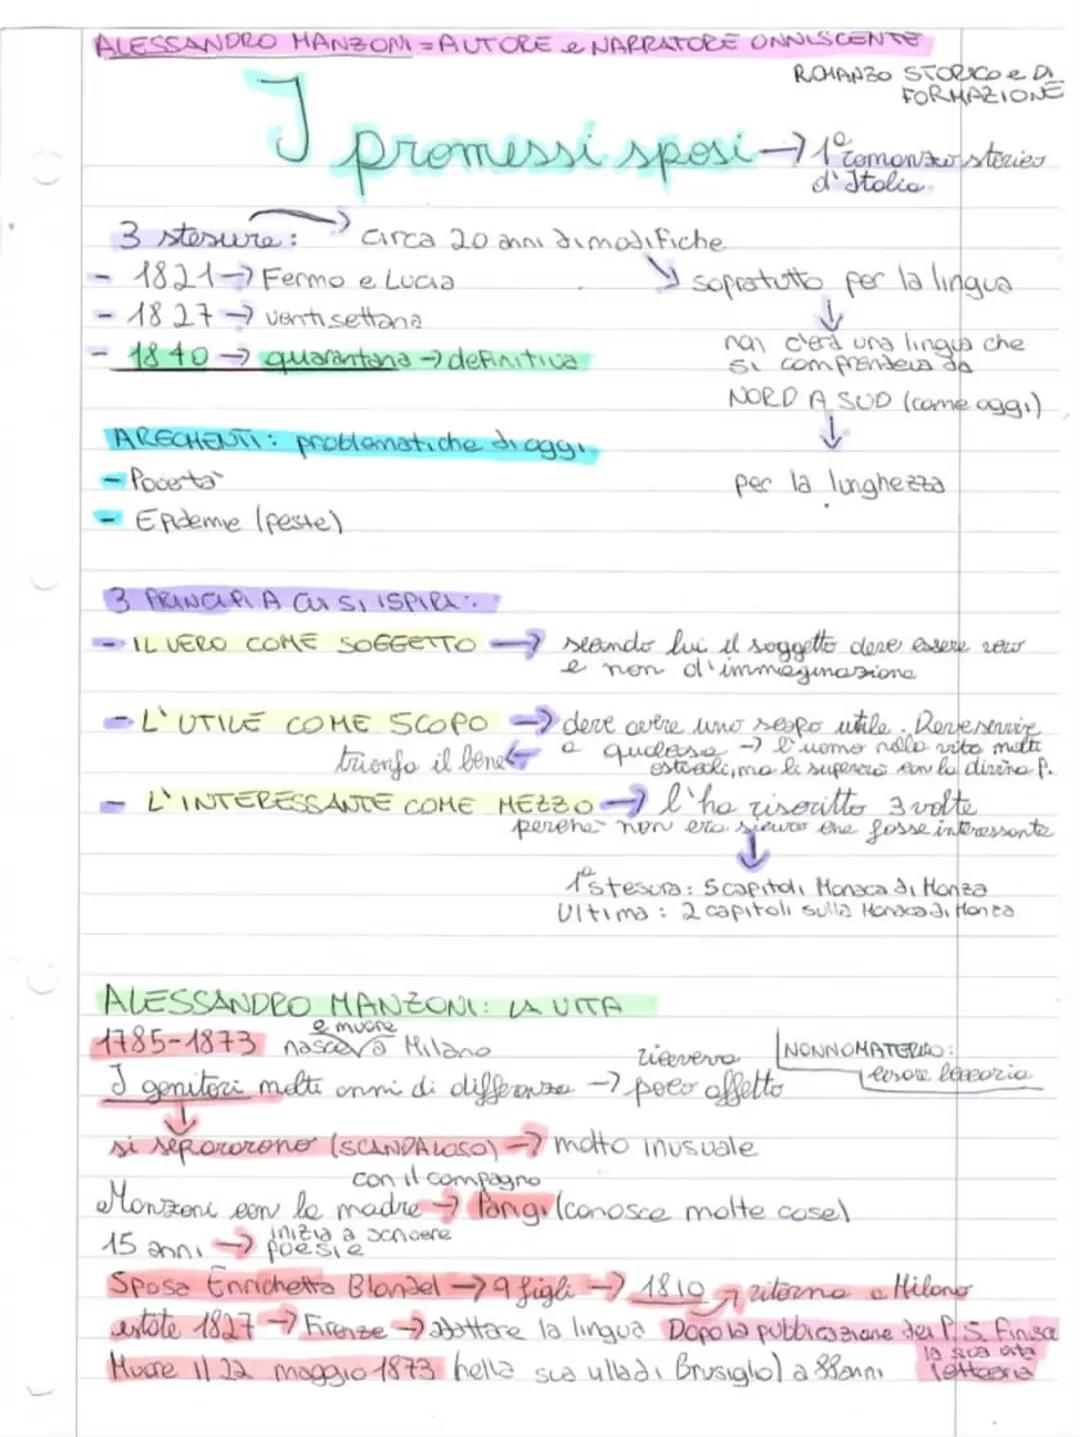 ALESSANDRO MANZONI = AUTORE e NARRATORE ONNISCENTE
ROMANZO STORICO e DI
FORMAZIONE
I promessi sposi → 1° romanzo storico
d'Italia
3 stesure: → circa 20 anni di modifiche
- 1821 → Fermo e Lucia
↘ sopratutto per la lingua
- 1827 → ventisettana
- 1840 → quarantana → definitiva
non c'era una lingua che
si comprendeva da
NORD A SUD (come oggi)
ARGOMENTI: problematiche di oggi
- Povertà
per la lunghezza
- Epidemie (peste)
3 PRINCIPI A CUI SI ISPIRA:
- IL VERO COME SOGGETTO → secondo lui il soggetto deve essere vero
e non d'immaginazione
- L'UTILE COME SCOPO → deve avere uno scopo utile. Deve servire
trionfa il bene ← a qualcosa → l'uomo nella vita molti
ostacoli, ma li supererà con la divina P.
- L'INTERESSANTE COME MEZZO → l'ha riscritto 3 volte
perchè non era sicuro che fosse interessante
1ª stesura: 5 capitoli Monaca di Monza
Ultima: 2 capitoli sulla Monaca di Monza
ALESSANDRO MANZONI: LA VITA
1785-1873 nasce e muore a Milano
NONNO MATERNO:
Cesare Beccaria
I genitori molti anni di differenza → riceveva poco affetto
si separarono (SCANDALOSO) → molto inusuale
con il compagno
Manzoni con la madre → Parigi (conosce molte cose)
15 anni → inizia a scrivere
poesie
Sposa Enrichetta Blondel → 9 figli → 1810 → ritorna a Milano
estate 1827 → Firenze → adattare la lingua Dopo la pubblicazione dei P.S. finisce
la sua vita
letteraria
Muore il 22 maggio 1873 (nella sua villa di Brusiglio) a 88 anni